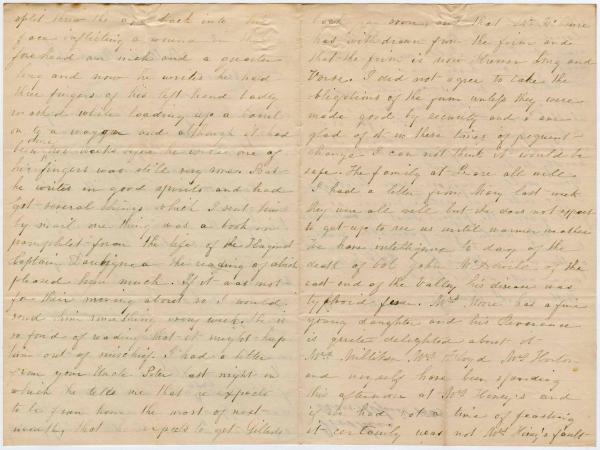 split from the axe back into his
face inflicting a wound in the
forehead an inch and a quarter
long and now he writes he had
three fingers of his left hand badly
mashed while loading up a barrel
on to a waggon and although it had
been done weeks when he wrote one of
his fingers was still very sore. But
he writes in good spirits and had
got several things which I sent him
by mail one thing was a book in
pamphlet form the life of the
Captain the reading of which
pleased him much. If it was not
for their moving about so I would
send him something every week. He is
so fond of reading that it might keep
him out of mischief. I had a letter
from your Uncle Peter last night in
which he tells me that he expects
to be from home the most of next
month, that he expects to get
has withdrawn from the firm and
that the firm is now Long and
I did not agree to take the
obligations of the firm unless they were
made good by security and I am
glad of it in these times of frequent
change I can not think it would be
safe. The family at are all well
I had a letter from Mary last week
they were all well but she does not expect
to get up to see us until warmer weather
We have intelligence to day of the
death of Col. John of the
east end of the Valley his disease was
typhoid fever. Mrs. has a fine
young daughter and his Reverance
is quite delighted about it
Mrs. Milliken Mrs. Floyd Mrs. Horton
and myself have been spending
this afternoon at Mrs. Henry's and
if we had not a time of feasting
it certainly was not Mrs. Henry's fault